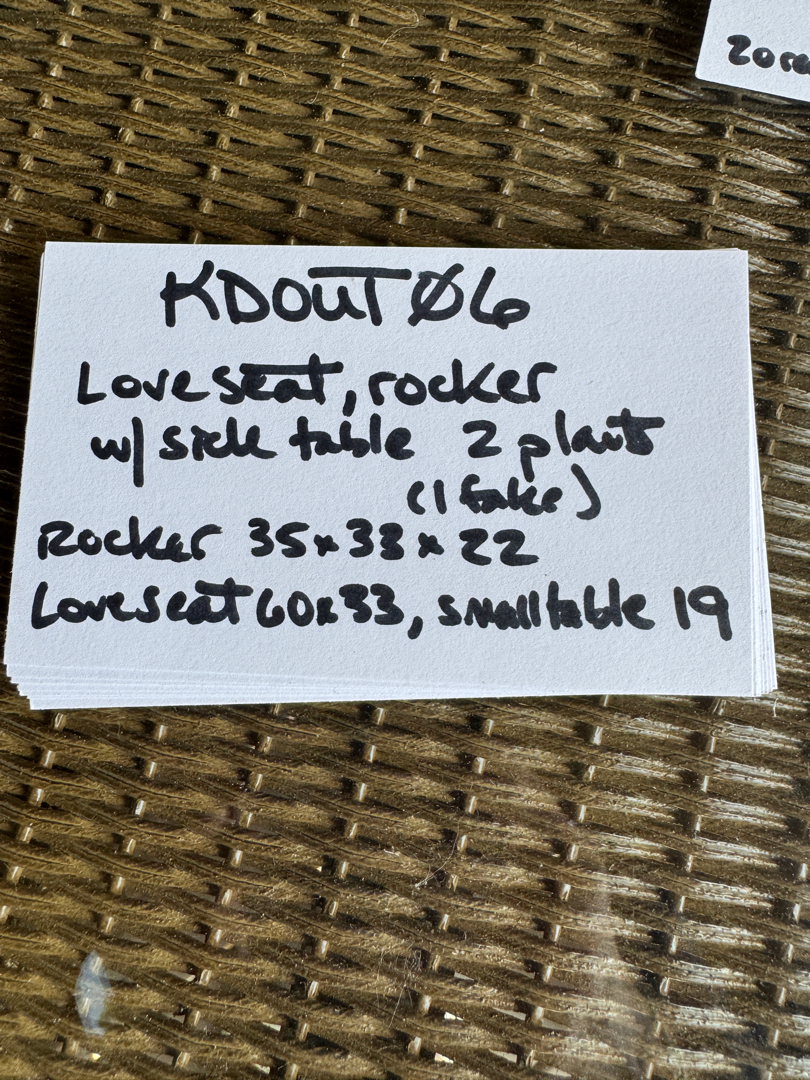 KDOUTØ6
Loveseat, rocker
w/ side table 2 plants
(1 fake)
Rocker 35x33x22
Loveseat 60x33, small table 19